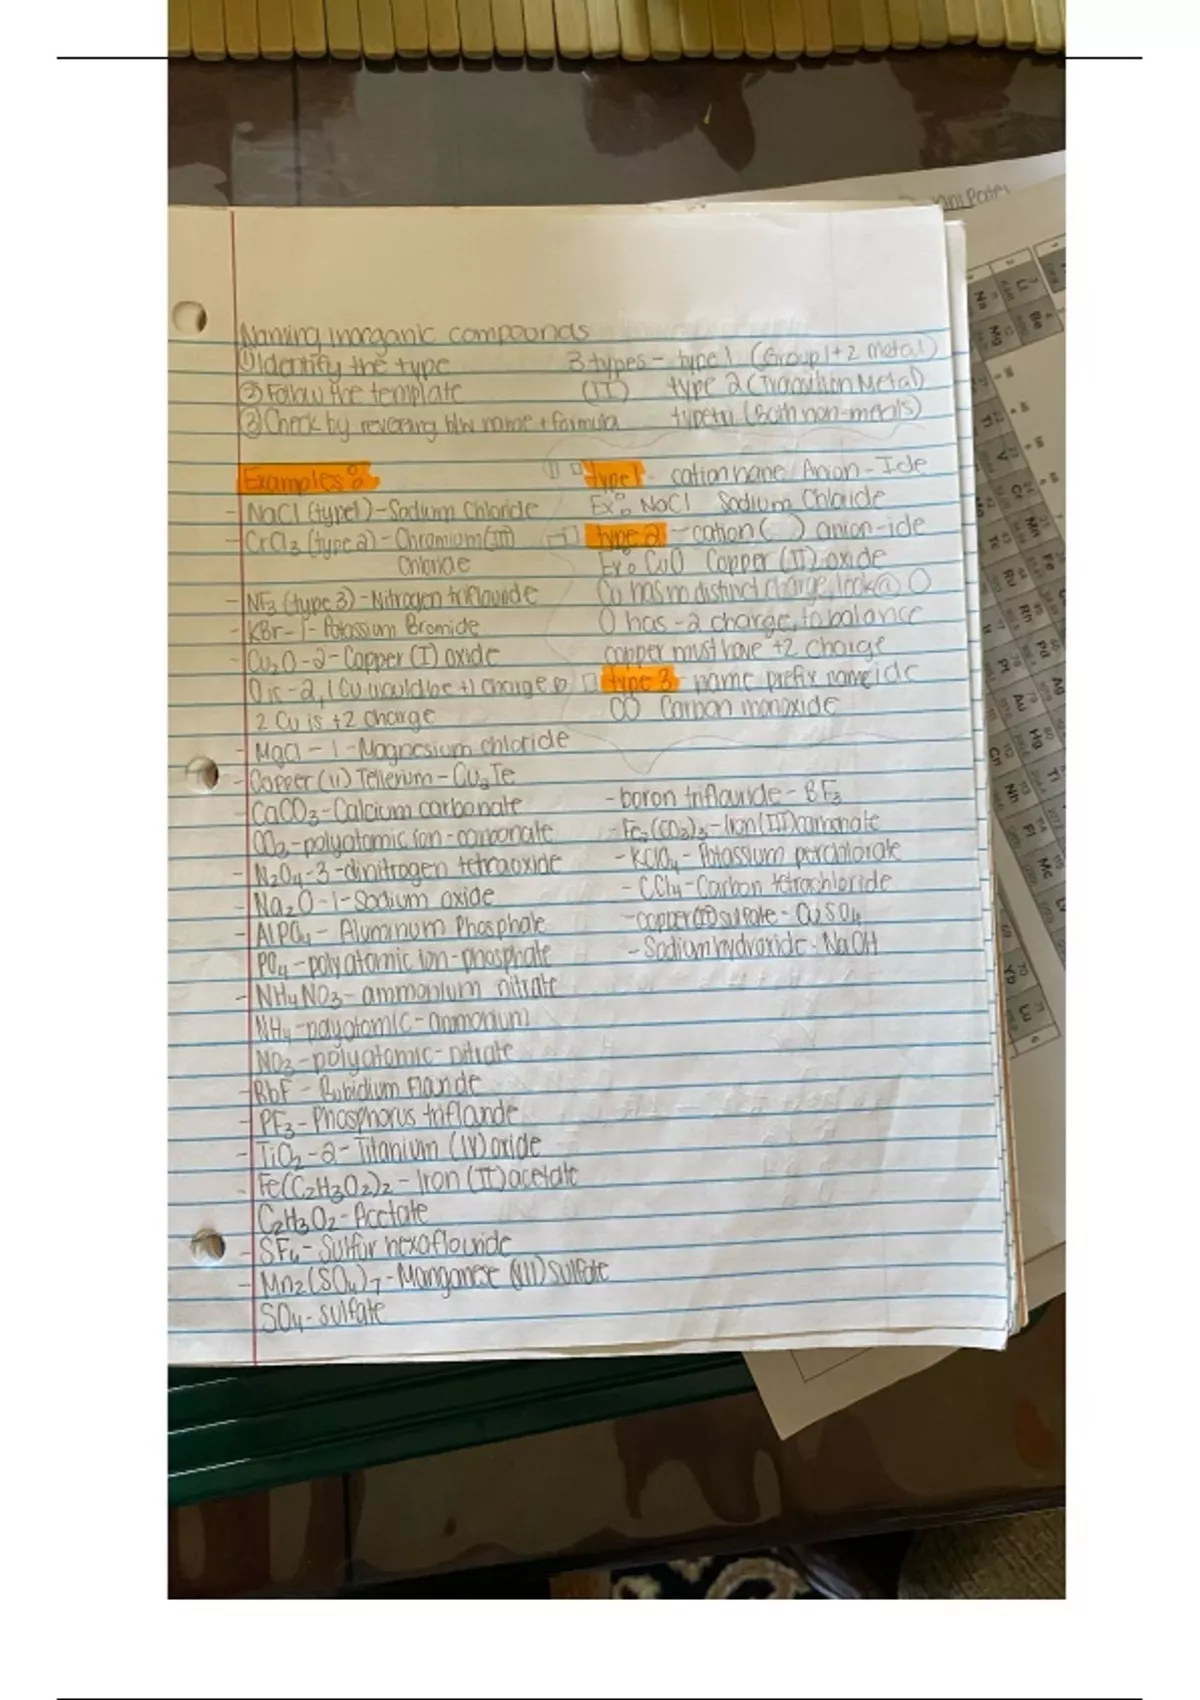 Naming inorganic compounds
① Identify the type
② Follow the template
③ Check by reversing b/w name + formula
3 types - type 1 (Group 1+2 metal)
(II) type 2 (Transition Metal)
(Both non-metals)
Examples:
- NaCl (type 1) - Sodium Chloride
- CrCl3 (type 2) - Chromium (III)
Chloride
- NF3 (type 3) - Nitrogen triflouride
- KBr - 1 - Potassium Bromide
- Cu2O - 2 - Copper (I) oxide
O is -2, 1 Cu would be +1 charge
2 Cu is +2 charge
- MgCl - 1 - Magnesium chloride
- Copper (II) Tellerium - Cu2Te
CaCO3 - Calcium carbonate
CO3 - polyatomic ion - carbonate
- N2O4 - 3 - dinitrogen tetraoxide
- Na2O - 1 - Sodium oxide
- AlPO4 - Aluminum Phosphate
PO4 - polyatomic ion - phosphate
- NH4NO3 - ammonium nitrate
NH4 - polyatomic - ammonium
NO3 - polyatomic - nitrate
- RbF - Rubidium
- PF3 - Phosphorus
- TiO2 - 2 - Titanium (IV) oxide
- Fe(C2H3O2)2 - Iron (II) acetate
C2H3O2 - Acetate
- SF6 - Sulfur hexaflouride
- Mn2(SO4)7 - Manganese (VII) Sulfate
SO4 - sulfate
type 1 - cation name Anion - Ide
Ex: NaCl Sodium Chloride
type 2 - cation ( ) anion - ide
Ex: CuO Copper (II) oxide
Cu has no distinct charge, look @ O
O has -2 charge, to balance
copper must have +2 charge
type 3 - name prefix name ide
CO Carbon monoxide
- boron triflouride - BF3
- Fe2(CO3)3 - Iron (III) carbonate
- KClO4 - Potassium perchlorate
- CCl4 - Carbon tetrachloride
- copper (II) sulfate - CuSO4
- Sodium hydroxide - NaOH